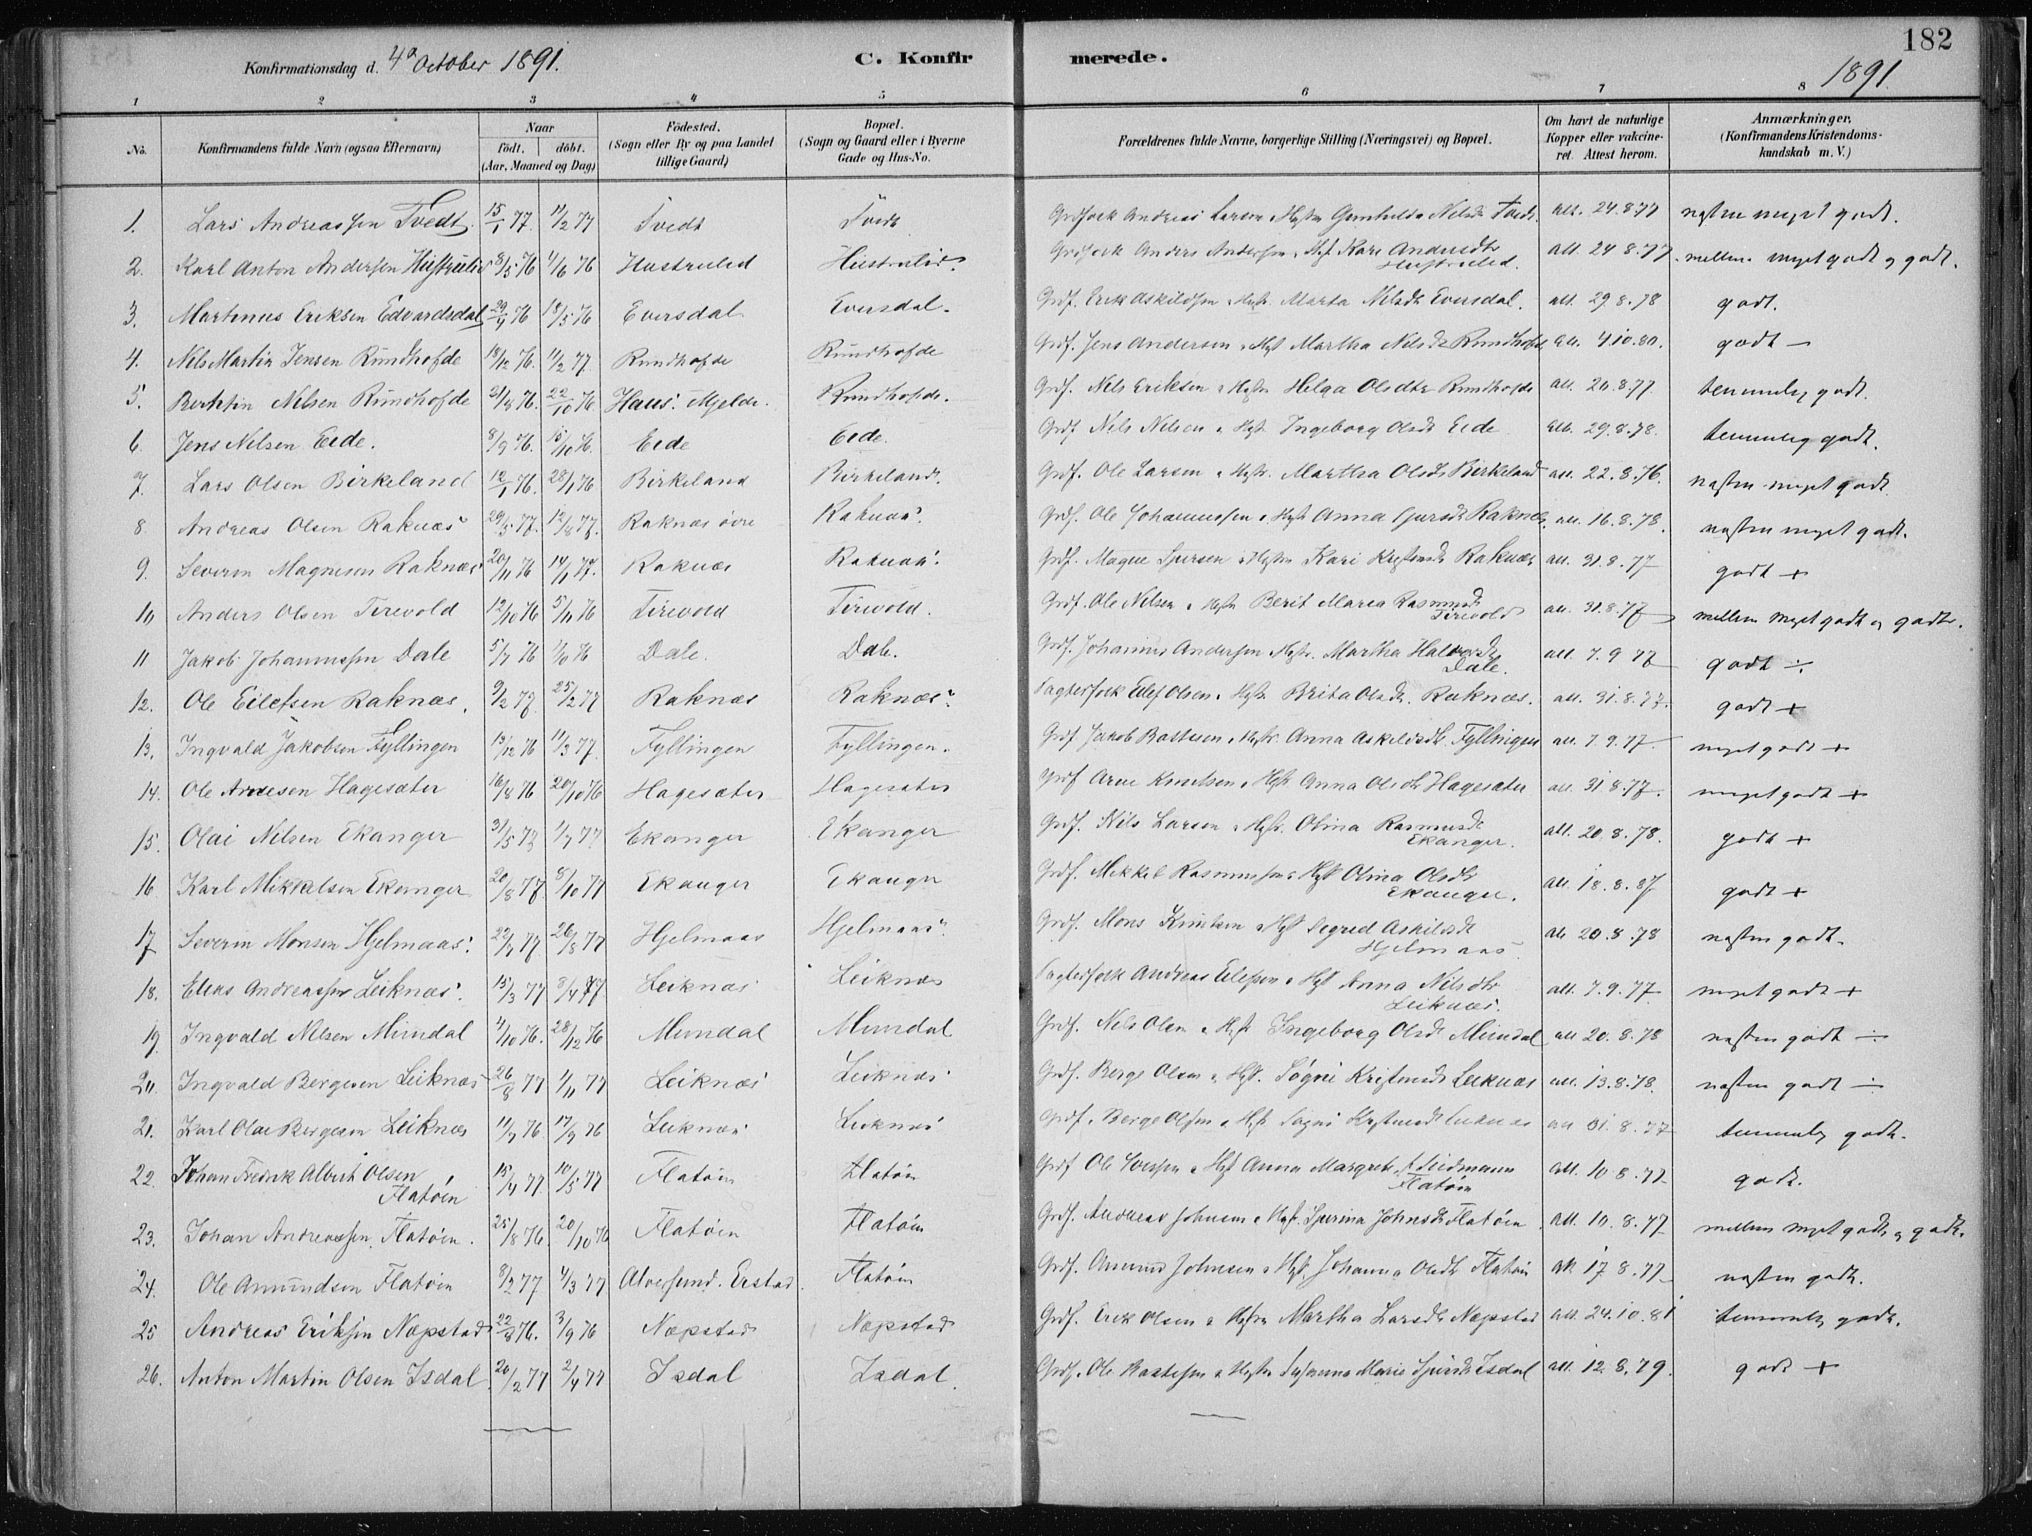 182
Konfirmationsdag d. 4de October 1891.
C. Konfirmerede.
1891.
1 2 3 4 5 6 7 8
No.
Konfirmandens fulde Navn (ogsaa Efternavn)
Naar
Født, døbt.
(Aar, Maaned og Dag)
Fødested.
(Sogn eller By og paa Landet
tillige Gaard)
Bopæl.
(Sogn og Gaard eller i Byerne
Gade og Hus-No.
Forældrenes fulde Navne, borgerlige Stilling (Næringsvei) og Bopæl.
Om havt de naturlige
Kopper eller vakcine-
ret. Attest herom.
Anmærkninger.
(Konfirmandens Kristendoms-
kundskab m. V.)
1. Lars Andreassen Tvedt. 15/1 77. 11/2 77 Tvedt Tvedt Grdfolk Andreas Larsen & Hstr Gunhilda Nilsdr Tvedt. att. 24.8.77 næsten meget godt.
2. Karl Anton Andersen Hustrulid 8/5 76 4/6 76 Hustruled Hustrulid. Grdfolk Anders Andersen & Hst Kari Andersdtr Hustruled. att. 24 8.77. mellem meget godt og godt.
3. Martinus Eriksen Edvardsdal 29/4 76 18/5 76 Eversdal Eversdal. Grdf. Erik Askildsen & Hstr. Marta Nilsdr Eversdal. att. 29 8.78 godt.
4. Nils Martin Jensen Rundhofde 18/12 76. 11/2 77. Rundhofde Rundhofde Grdf. Jens Andersen & Hst Martha Nilsdr Rundhofde att. 4 10.80. godt —
5. Nilsen Rundhofde 21/8 76. 22/10 76. Haus: Mjelde. Rundhofde. Grdf. Nils Eriksen & Hstr Helga Olsdtr Rundhofde att. 20.8.77. temmelig godt.
6. Jens Nilsen Eide. 8/9 76. 15/10 76. Eide Eide. Grdf. Nils Nilsen & Hst. Ingeborg Olsdr Eide att. 29.8.78. temmelig godt.
7. Lars Olsen Birkeland 12/1 76. 28/1 76 Birkeland Birkeland. Grdf. Ole Larsen & Hstr. Martha Olsdr Birkeland att. 22.8.76. næsten meget godt
8. Andreas Olsen Raknæs 29/3 77. 12/4 77. Raknæs øvre Raknæs. Grdf. Ole Johannessen & Hst Anna Raknæs. att. 16.8.78. næsten meget godt.
9. Severin Magnesen Raknæs 20/11 76 14/1 77. Raknæs Raknæs. Grdf. Magne & Hstr Kari Raknæs att. 31.8.77 godt +
10 Anders Olsen Tirevold 12/10 76 5/11 76 Tirevold Tirevold. Grdf. Ole Nilsen & Hstr Berit Maria Rasmusdr Tirevold att. 31.8.77 mellem meget godt og godt.
11 Jakob Johannessen Dale 5/7 76 Dale. Dale. Grdf. Johannes Andersen & Hstr. Martha Dale. att. 7.9 77 godt ÷
12. Ole Eilefsen Raknæs. 9/2 77. 25/2 77 Raknæs Raknæs Eilef Olsen & Hstr Brita Olsdr. Raknæs. att. 31.8.77. godt +
13. Ingvald Jakobsen Fyllingen 13/12 76 11/3 77. Fyllingen Fyllingen. Grdf Jakob & Hstr. Anna Askildsdr. Fyllingen att. 7.9.77. meget godt +
14. Ole Arnesen Hagesæter 16/8 76 20/10 76 Hagesæter Hagesæter Grdf Arne Knutsen & Hstr Anna Olsdtr Hagesæter att. 31 8.77. meget godt +
15. Olai Nilsen Ekanger 31/5 77 1/7 77 Ekanger Ekanger Grdf. Nils Larsen & Hstr. Olina Rasmusdr Ekanger. att. 20.8.78. godt +
16 Karl Mikkelsen Ekanger 20/8 77 8/10 77 Ekanger Ekanger Grdf. Mikkel Rasmussen & Hst Olina Olsdr Ekanger. att. 18.8.87 godt +
17 Severin Monsen Hjelmaas. 22/7 77 26/8 77 Hjelmaas Hjelmaas Grdf. Mons Knutsen & Hst Sigred Askildsdr Hjelmaas. att 20.8.78 næsten godt.
18. Elias Andreassen Leiknæs. 15/3 77 8/4 77 Leiknæs Leiknæs Andreas & Hst Anna Nilsdtr Leiknæs. att. 7.9.77 meget godt +
19 Ingvald Nilsen Mundal 4/10 76. 28/12 76 Mundal Mundal Grdf. Nils Olsen & Hstr Ingeborg Olsdr Mundal att 20.8.78 næsten godt ÷
20. Ingvald Bergesen Leiknæs 26/8 77 4/11 77 Leiknæs Leiknæs Grdf. Berge Olsen & Hst. Leiknæs att. 13.8.78. næsten godt ÷
21. Karl Olai Bergesen Leiknæs 11/7 76 17/9 76 Leiknæs Leiknæs Grdf. Berge Olsen & Hst att 31.8.77 temmelig godt.
22. Johan Fredrik Albert Olsen Flatøen 15/4 77 10/5 77 Flatøen Flatøen Grdf Ole & Hst Anna Margrete Flatøen att. 10 8.77 godt.
23. Johan Andreassen Flatøen. 25/8 76. 20/10 76 Flatøen Flatøen Grdf. Andreas Johnsen & Hst. Johnsdr Flatøen att. 10.8.77 mellem meget godt og godt.
24. Ole Amundsen Flatøen 8/2 77 4/3 77 Alversund. Erstad Flatøen Grdf. Amund Johnsen & Hst. Johanna Olsdtr Flatøen att 17 8.77 næsten godt.
25 Andreas Eriksen Næpstad 22/8 76. 3/9 76 Næpstad Næpstad Grdf. Erik Olsen & Hstr Martha Larsdtr Næpstad att. 24.10.81 temmelig godt.
26. Anton Martin Olsen Isdal 20/2 77 2/4 77 Isdal Isdal. Grdf. Ole & Hstr Susanna Marie Isdal att. 12.8.79. godt +